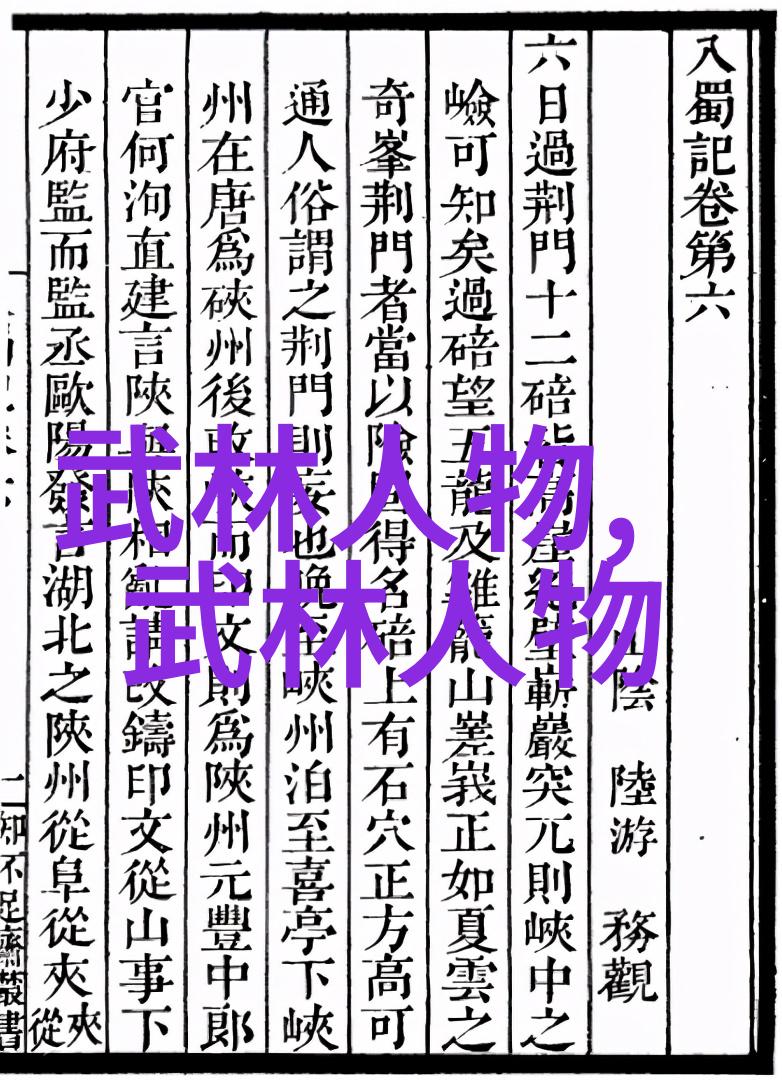 入蜀記卷第六
山陰　陸游　務觀
六日過荆門十二碚皆高崖絶壁嶄巖突兀則峽中之
嶮可知矣過碚望五龍及雞籠山嵳峩正如夏雲之
奇峯荆門者當以險固得名碚上有石穴正方高可
通人俗謂之荆門則妄也晚至峽州泊至喜亭下峽
州在唐爲硤州後改峽而印文則爲陝州元豐中郎
官何洵直建言陝與陝相亂請改鑄印文從山事下
少府監而監丞歐陽發言湖北之陝州從阜從夾夾從
二 知不足齋叢書
武林人物,
武林人物